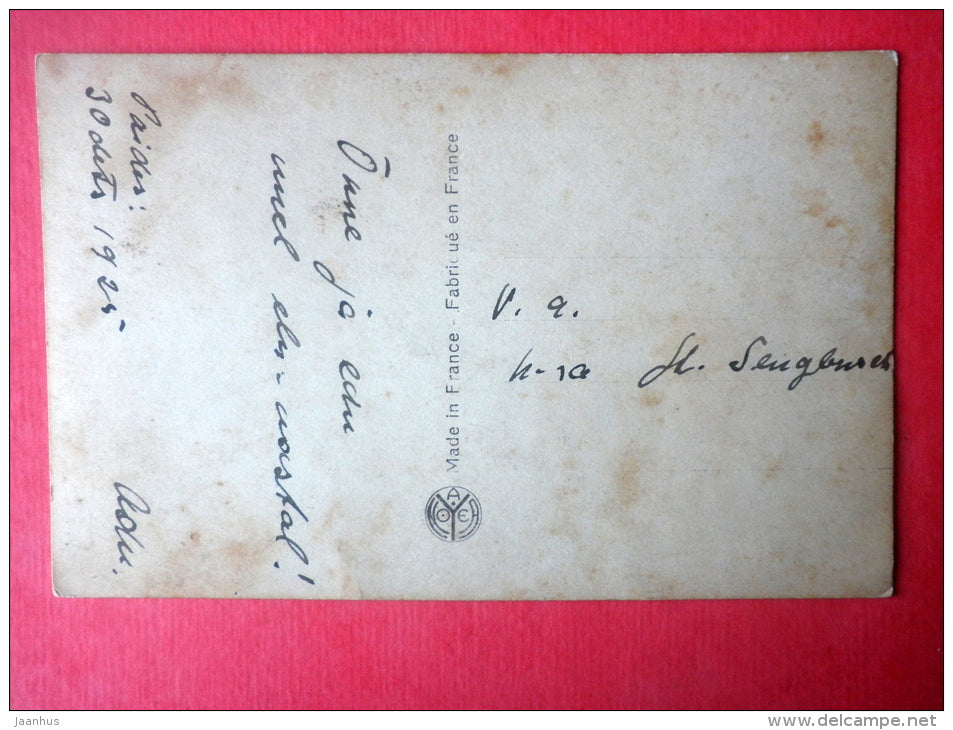 Paides:
30 dets 1925
Õnne ja edu
uuel elu-aastal!
Adu.
Made in France - Fabriqué en France
V. a.
H. Sengbusch
jaanhus
www.delcampe.net